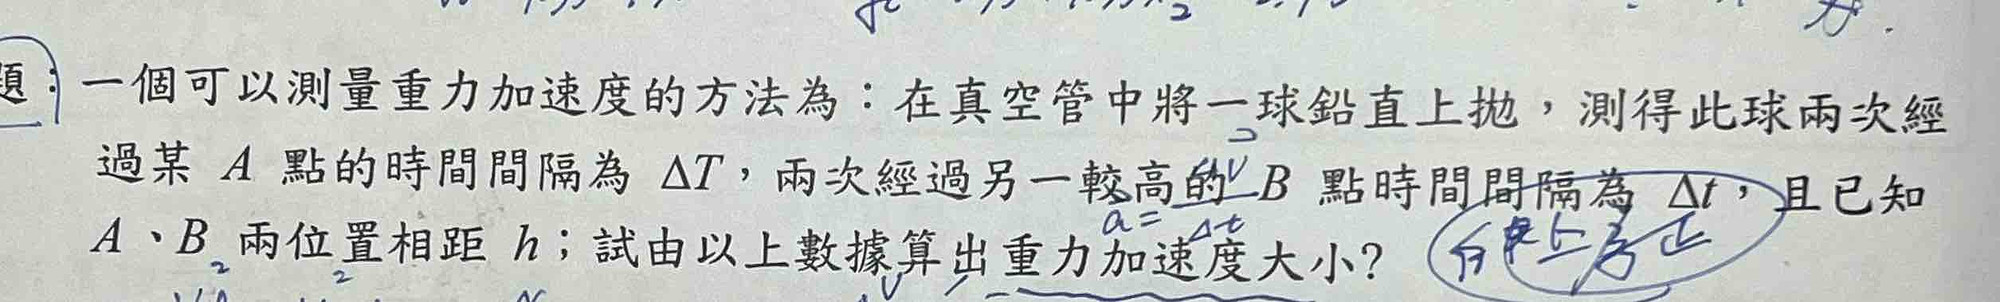 題：一個可以測量重力加速度的方法為：在真空管中將一球鉛直上拋，測得此球兩次經
過某 A 點的時間間隔為 ΔT，兩次經過另一較高的 B 點時間間隔為 Δt，且已知
a = Δt
A、B 兩位置相距 h；試由以上數據算出重力加速度大小？